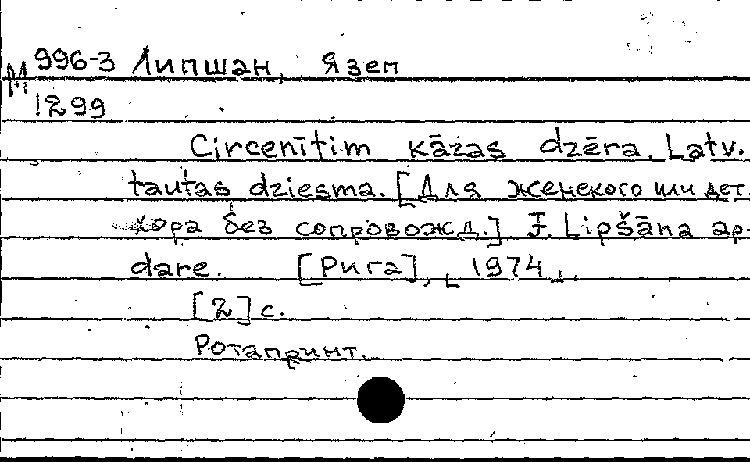 М 996-3 Липшан, Язеп
1299
Circenītim kāzas dzēra. Latv.
tautas dziesma. [Для женского или дет.
хора без сопровожд.] J. Lipšāna ap-
dare. [Рига], [1974].
[2] с.
Ротапринт.